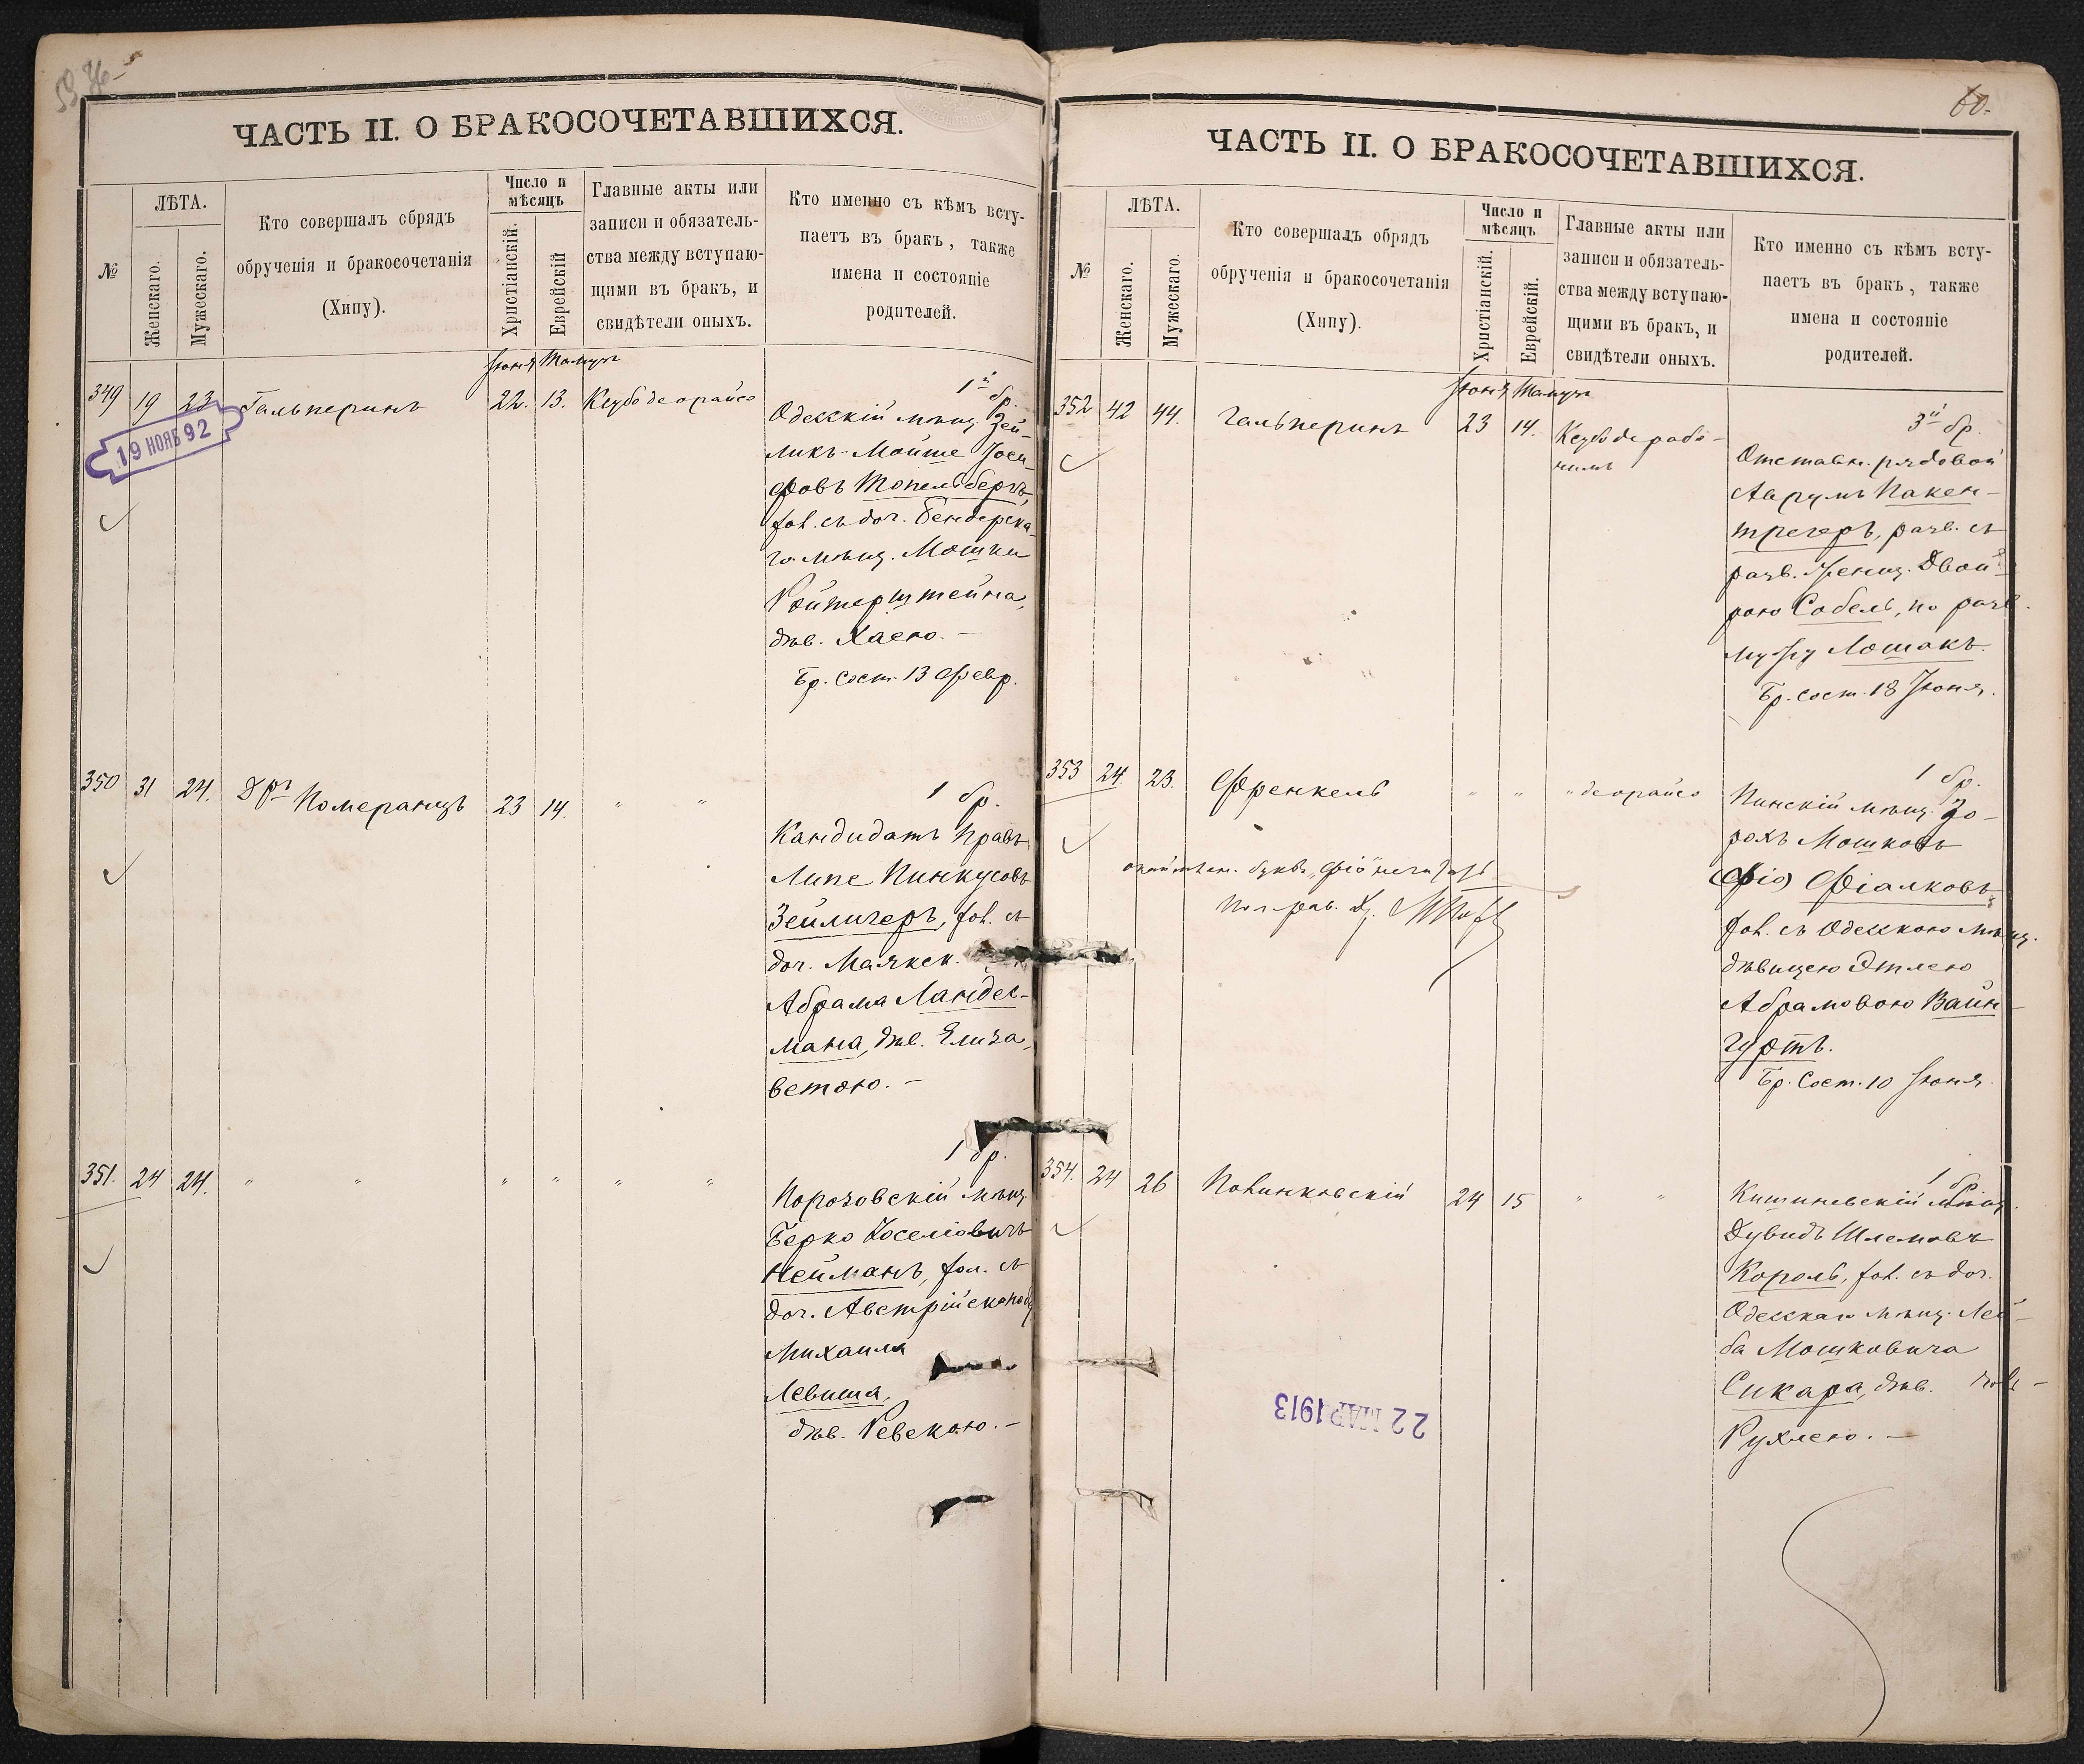 ЧАСТЬ II. О БРАКОСОЧЕТАВШИХСЯ.
№
ЛѢТА.
Женскаго.
Мужескаго.
Кто совершалъ обрядъ
обрученія и бракосочетанія
(Хипу).
Число и
мѣсяцъ
Христіанскій.
Еврейскій
Главные акты или
записи и обязатель-
ства между вступаю-
щими въ бракъ, и
свидѣтели оныхъ.
Кто именно съ кѣмъ всту-
паетъ въ бракъ, также
имена и состояніе
родителей.
Іюня Тамузъ
349 19 23 Гальперинъ 22. 13. Ксубо деорайсо
19 НОЯБ 92
1й бр.
Одесскій мѣщ. Зей-
ликъ-Мойше Іоси-
фовъ Топельбергъ,
съ доч. Бендерска-
го мѣщ. Мошки
Ройтерштейна,
дѣв. Хаею. —
Бр. сост. 13 Февр.
350 31 24. Дръ Померанцъ 23 14. " "
1 бр.
Кандидатъ правъ
Липе Пинкусовъ
Зейлигеръ, съ
доч. Маякск.
Абрама Ландес-
мана, дѣв. Елиза-
ветою. —
351. 24 24. " " " " " "
1 бр.
Порозовскій мѣщ.
Берко Іоселіовичъ
Нейманъ, съ
доч. Австрійск.
Михаила
Левиша,
дѣв. Ревекою. —
60.
ЧАСТЬ II. О БРАКОСОЧЕТАВШИХСЯ.
№
ЛѢТА.
Женскаго.
Мужескаго.
Кто совершалъ обрядъ
обрученія и бракосочетанія
(Хипу).
Число и
мѣсяцъ
Христіанскій.
Еврейскій.
Главные акты или
записи и обязатель-
ства между вступаю-
щими въ бракъ, и
свидѣтели оныхъ.
Кто именно съ кѣмъ всту-
паетъ въ бракъ, также
имена и состояніе
родителей.
Іюня Тамузъ
352 42 44. Гальперинъ 23 14. Ксубо дерабо-
нимъ
3й бр.
Отставн. рядовой
Аврумъ Пакен-
трегеръ, разв. съ
разв. женщ. Двой-
рою Собель, по разв.
мужу Лошакъ.
Бр. сост. 18 Іюня.
353 24. 23. Френкель " " " деорайсо
1 бр.
Пинскій мѣщ. Зо-
рохъ Мошковъ
(Фіо) Фіалковъ,
съ Одесскою мѣщ.
дѣвицею Этлею
Абрамовою Вайн-
гуртъ.
Бр. сост. 10 Іюня.
354. 24 26 Повинковскій 24 15 " "
1 бр.
Кишиневскій мѣщ.
Дувидъ Шлемовъ
Король, съ доч.
Одесскаго мѣщ. Лей-
ба Мошковича
Сикара, дѣв.
Рухлею. —
22 МАР 1913